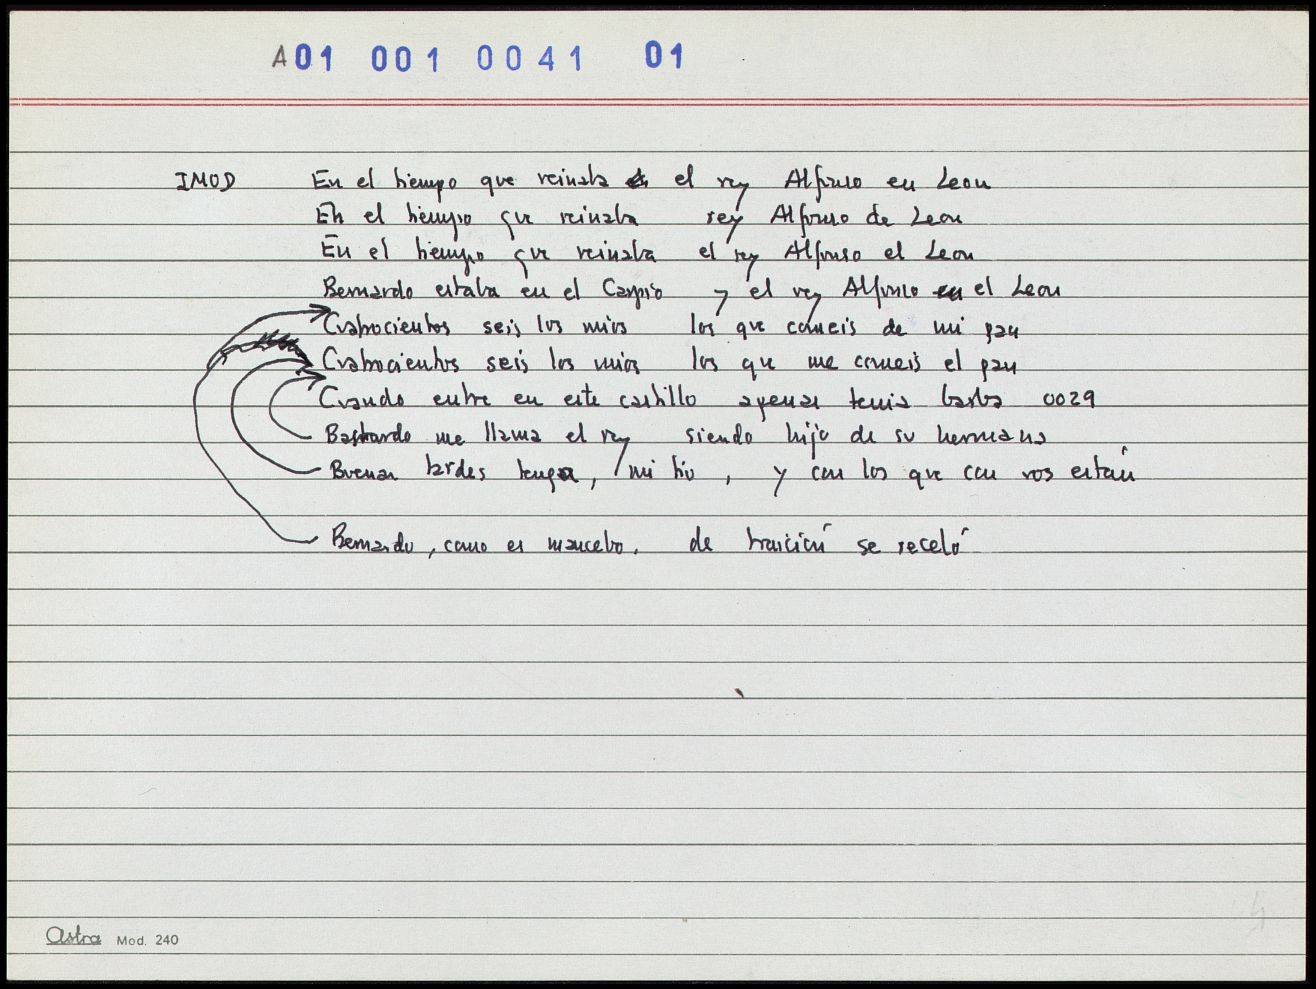 A01 001 0041 01
IMOD En el tiempo que reinaba el rey Alfonso en Leon
En el tiempo que reinaba rey Alfonso de Leon
En el tiempo que reinaba el rey Alfonso el Leon
Bernardo estaba en el Carpio y el rey Alfonso en el Leon
Cuatrocientos seis los mios los que comeis de mi pan
Cuatrocientos seis los mios los que me comeis el pan
Cuando entre en este castillo apenas tenia barba 0029
Bastardo me llama el rey siendo hijo de su hermana
Buenas tardes tenga, mi tio, y con los que con vos están
Bernardo, como es mancebo, de traición se receló
Astra Mod. 240